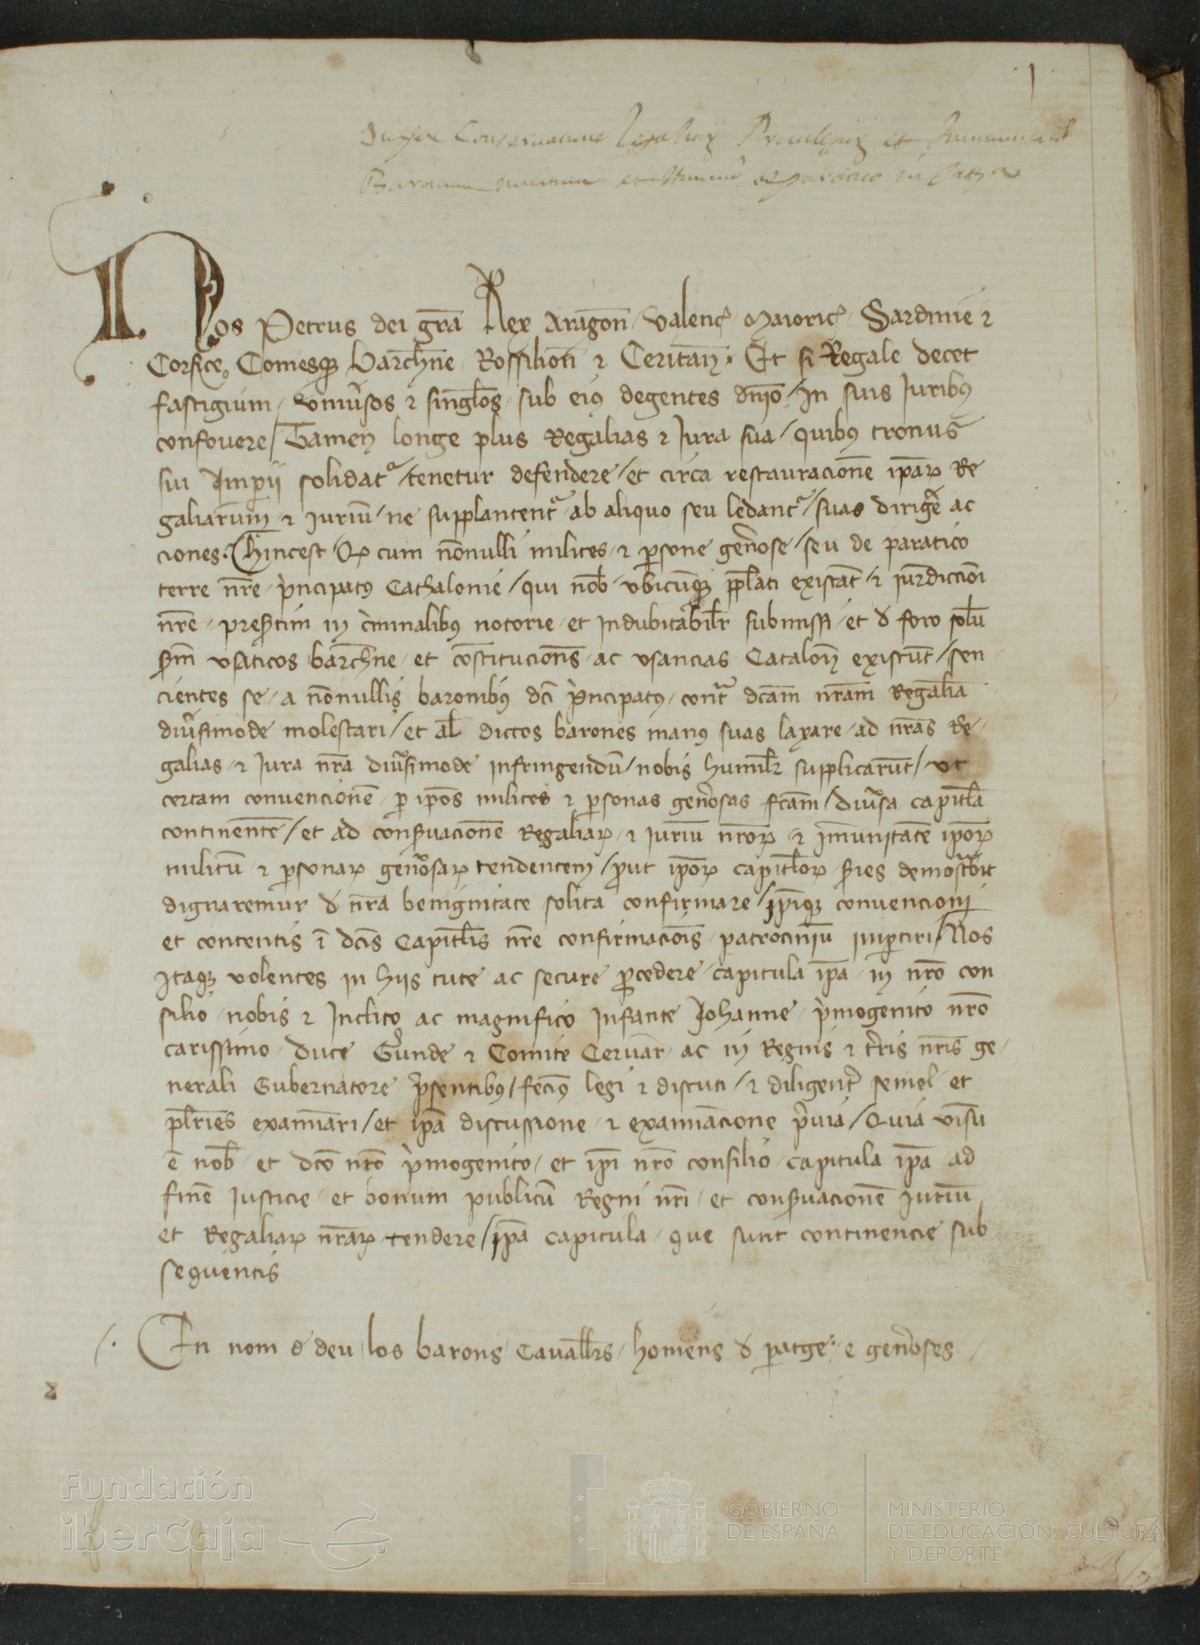 1
super Conservatione Regaliarum Privilegiorum et
et de paratico in
Nos Petrus dei gr̃a Rex Aragon̄ Valenc̃ Maioric̃ Sardinie ⁊
Corsice Comesqꝫ Barchñe Rossilion̄ ⁊ Ceritañ Et si Regale decet
fastigium vniũsos ⁊ singl̃os sub eiꝰ degentes dñio / In suis Iuribꝰ
confovere / Tamen longe plus Regalias ⁊ Iura sua / quibꝰ tronus
sui Imp̃ii solidatr̃ / tenetur defendere / et circa restauracionẽ ip̃aꝝ Re
galiarum ⁊ iuriũ / ne supplantent̃ ab aliquo seu ledant̃ / suas dirige᷑ ac
ciones. Hinc est Qꝫ cum nõnulli milites ⁊ p̱sone gen̉ose / seu de paratico
terre nr̃e p̉ncipatꝰ Cathalonie / qui nob̃ vbicũqꝫ p̱lati existãt / ⁊ iur̃diccioni
nr̃e presertim in c̉minalibꝰ notorie et indubitabilr̃ submissi / et d̉ foro solũ
s̃m vsaticos barchñe et cõstitucion̄s ac vsancias Catalon̄ existũt / sen
cientes se a nõnullis baronibꝰ dc̃i p̉ncipatꝰ cont̃ dc̃am nr̃am Regaliã
diũsimode molestari / et al̃ dictos barones manꝰ suas laxare ad nr̃as Re
galias ⁊ Iura nr̃a diũsimode infringendũ / nobis humilr̃ supplicarũt / vt
certam convencionẽ p̱ ip̃os milites ⁊ p̱sonas gen̉osas fc̃am / diũsa capitl̃a
continentẽ / et ad cons̃uacionẽ Regaliaꝝ ⁊ iuriũ nr̃oꝝ ⁊ im̃unitatẽ ip̃oꝝ
militũ ⁊ p̱sonaꝝ gen̉osaꝝ tendentem / p̱ut ip̃oꝝ capitl̃oꝝ s̃ies demostrabit
dignaremur d̉ nr̃a benignitate solita confirmare / ip̃iqꝫ convencioni
et contentis ĩ dc̃is Capitl̃is nr̃e confirmacionis patrociniũ imp̱tiri / Nos
Itaqꝫ volentes in hiis tute ac secure p̱cedere capitula ip̃a in nr̃o con
silio nobis ⁊ Inclito ac magnifico Infante Iohanne p̉mogenito nr̃o
carissimo duce Ger̃unde ⁊ Comite Ceruar̃ ac in Regnis ⁊ t̃ris nr̃is ge
nerali Gubernatore p̃sentibꝰ / fecimꝰ legi ⁊ discuti / ⁊ diligent̃ semel et
pl̃ries examinari / et ip̃a discussione ⁊ examinacione p̉via / Quia visũ
ẽ nob̃ et dc̃o nr̃o p̉mogenito / et ip̃i nr̃o consilio capitula ip̃a ad
finẽ iusticie et bonum publicũ Regni nr̃i et cons̃uacionẽ iuriũ
et Regaliaꝝ nr̃aꝝ tendere / ip̃a capitula que sunt continencie sub
sequentis
En nom d̉ deu los barons Cavallr̃s homens d̉ p̱atge e gen̉oses
Fundación
iberCaja
GOBIERNO
DE ESPAÑA
MINISTERIO
DE EDUCACIÓN, CULTURA
Y DEPORTE